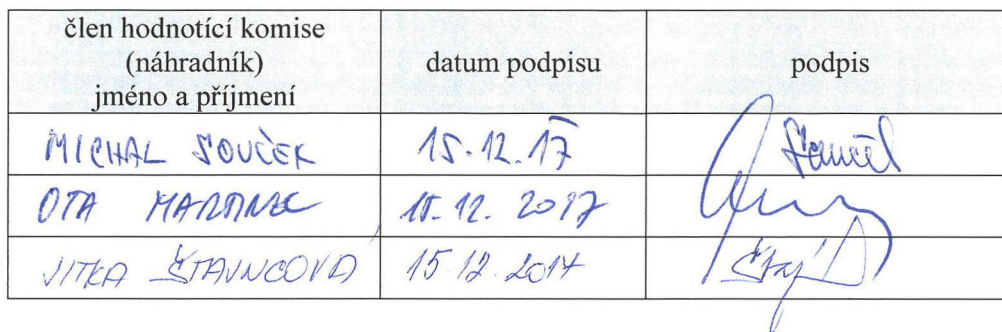 člen hodnotící komise
(náhradník)
jméno a příjmení
datum podpisu
podpis
MICHAL SOUČEK 15.12.17 Souček
OTA MARTINEC 15.12. 2017
JITKA 15.12.2017